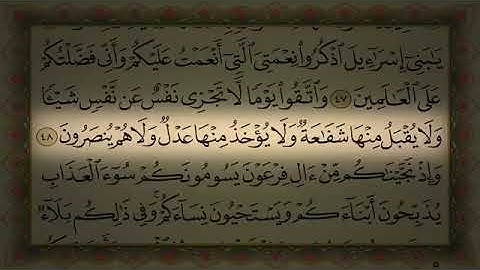 يَٰبَنِىٓ إِسْرَٰٓءِيلَ ٱذْكُرُوا۟ نِعْمَتِىَ ٱلَّتِىٓ أَنْعَمْتُ عَلَيْكُمْ وَأَنِّى فَضَّلْتُكُمْ
عَلَى ٱلْعَٰلَمِينَ ٤٧ وَٱتَّقُوا۟ يَوْمًا لَّا تَجْزِى نَفْسٌ عَن نَّفْسٍ شَيْـًٔا
وَلَا يُقْبَلُ مِنْهَا شَفَٰعَةٌ وَلَا يُؤْخَذُ مِنْهَا عَدْلٌ وَلَا هُمْ يُنصَرُونَ ٤٨
وَإِذْ نَجَّيْنَٰكُم مِّنْ ءَالِ فِرْعَوْنَ يَسُومُونَكُمْ سُوٓءَ ٱلْعَذَابِ
يُذَبِّحُونَ أَبْنَآءَكُمْ وَيَسْتَحْيُونَ نِسَآءَكُمْ وَفِى ذَٰلِكُم بَلَآءٌ